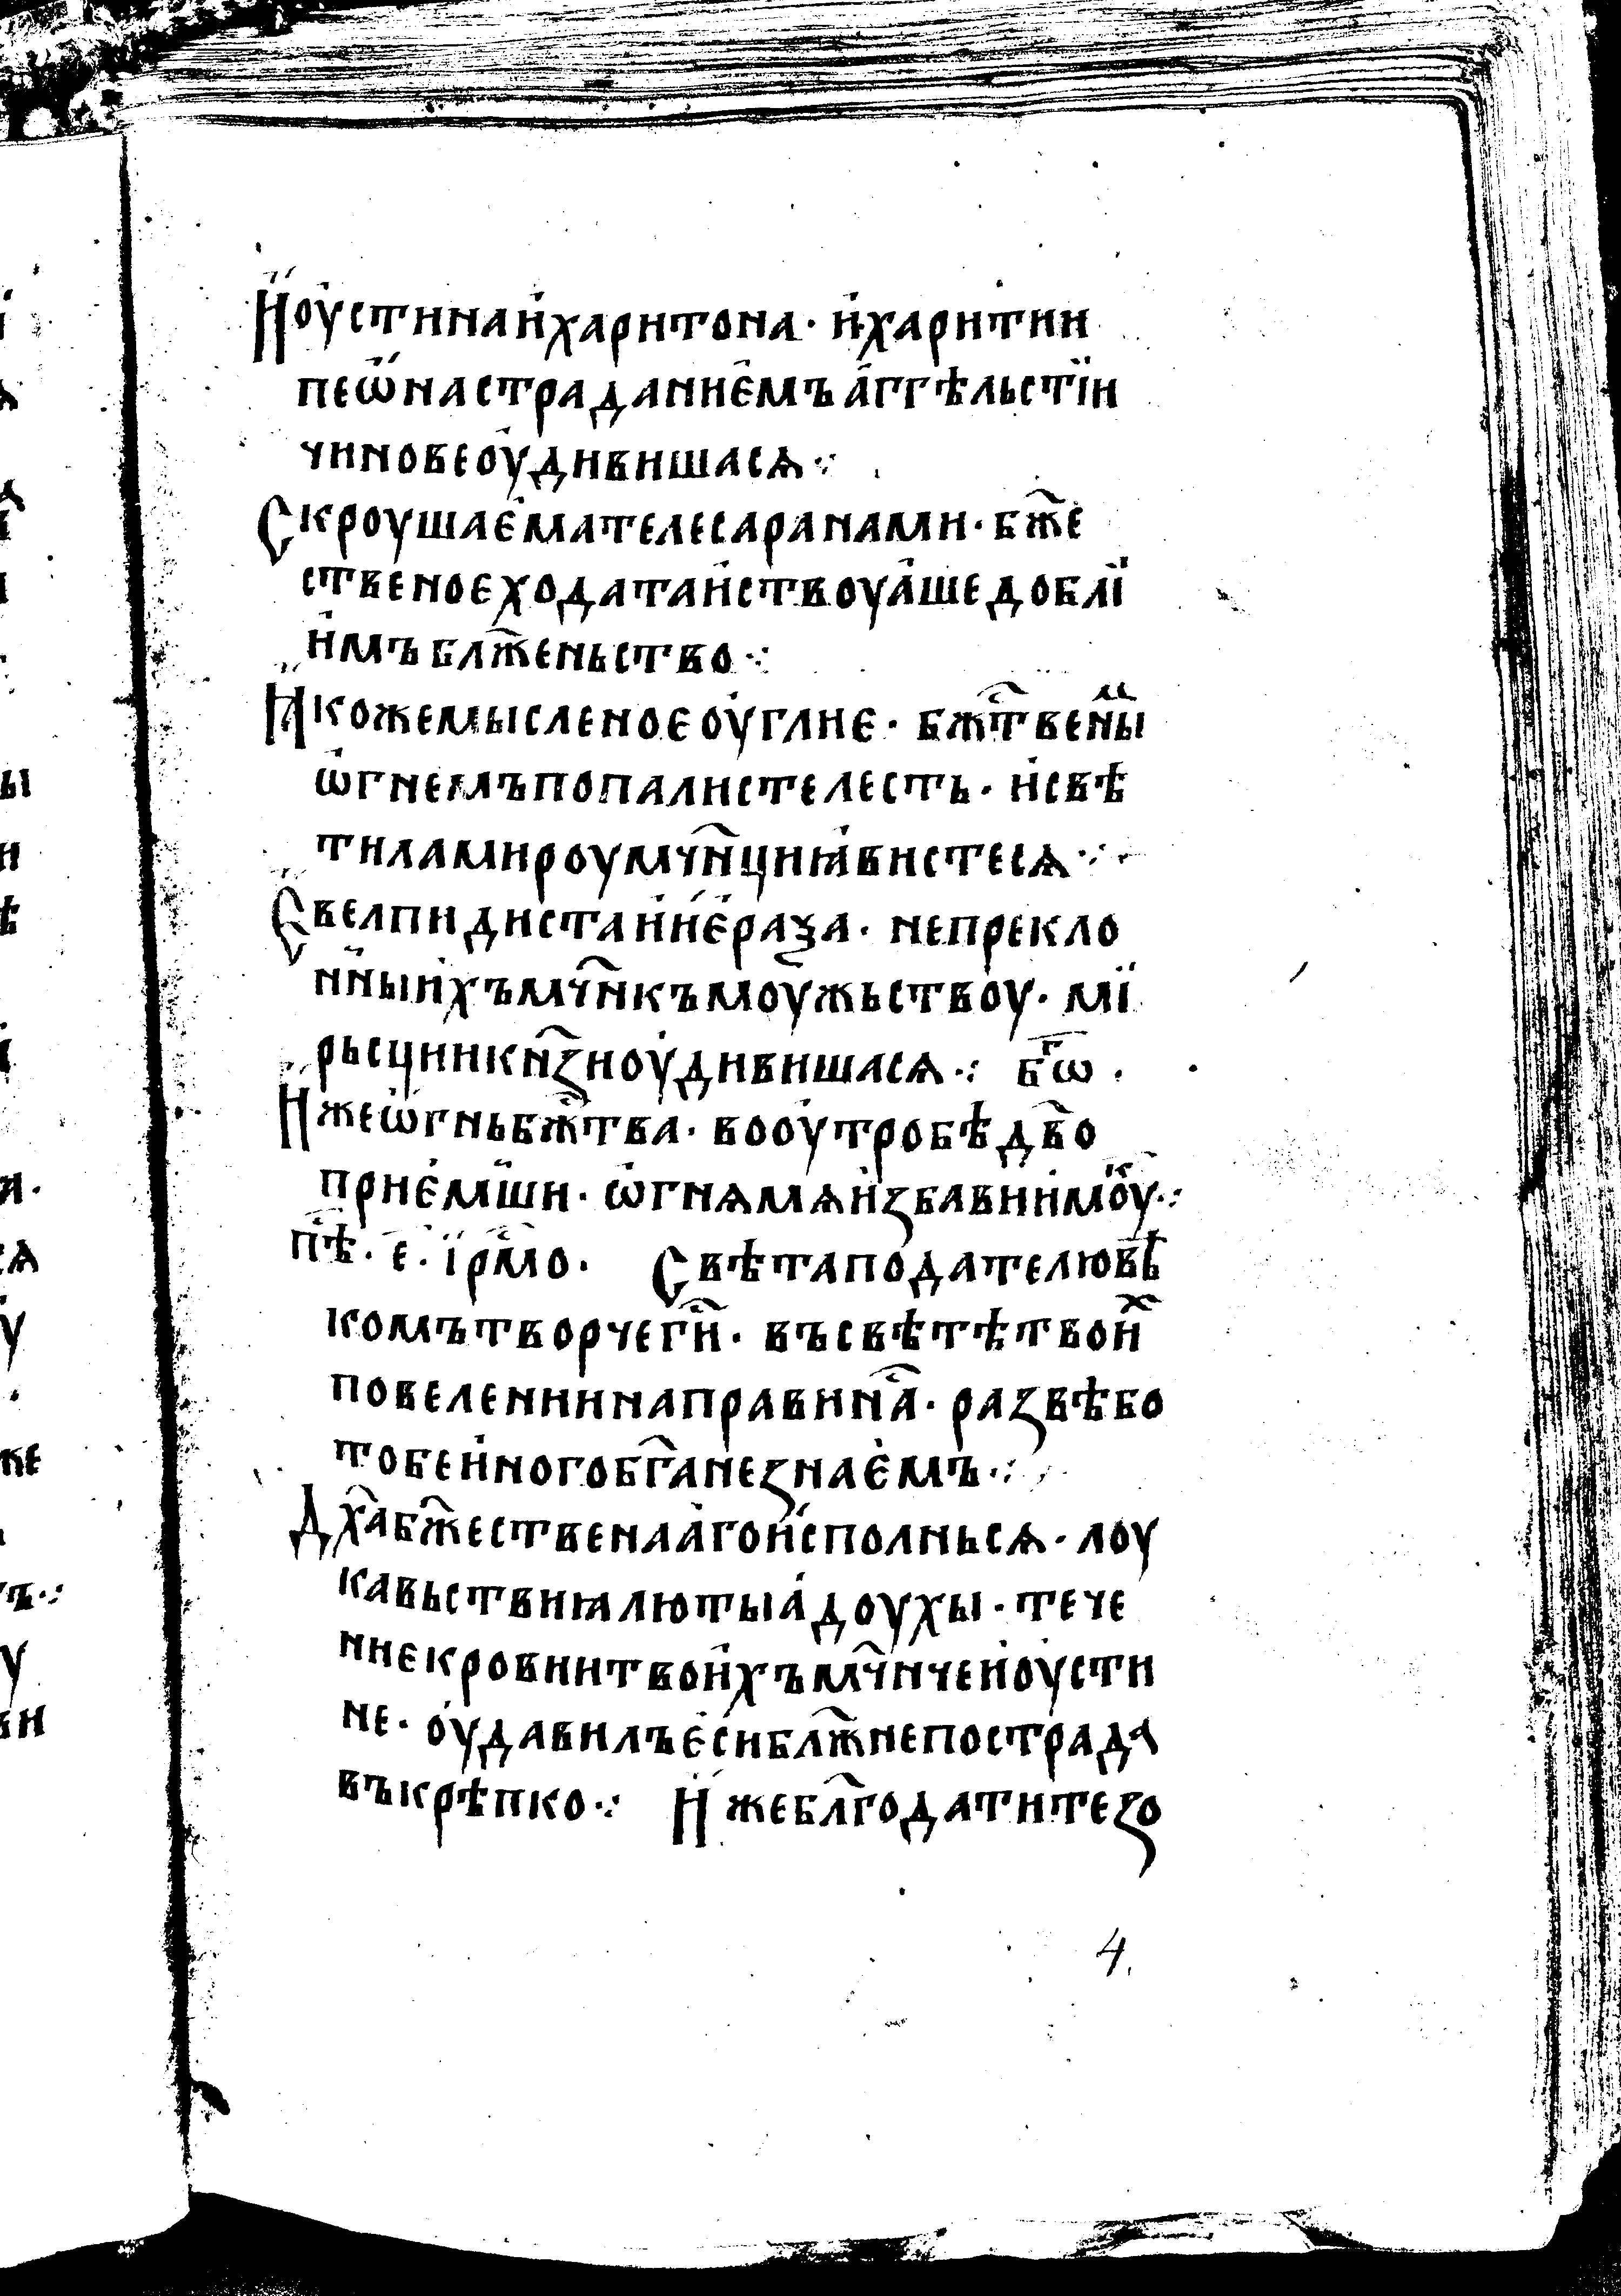 И҆оу҆стина и҆ харитона · и҆ харитии
пеѡ҆на страданиемъ а҆ггѣльстїи
чинове оу҆дивишасѧ ⁘
Скроушаема телеса ранами · бж҃е
ственое ходатаи҆ствоуа҆ше доблї
и҆мъ блж҃еньство ⁘
Ꙗкоже мысленое оу҆глие · бжⷭ҇твеныⷨ
ѡ҆гнемъ попалисте лесть · и҆ свѣ
тила мироу мч҃нци ꙗ҆вистесѧ ⁘
Свелпидиста и҆ и҆е҆раѯа · непрекло
нныи҆хъ мч҃нкъ моу҆жьствоу · мї
рьсции кнѧ҃зи оу҆дивишасѧ ⁘ бⷢ҇ѡ ·
И҆же ѡ҆гнь бжⷭ҇тва · во оу҆тробѣ дв҃о
прие҆мши · ѡ҆гнѧ мѧ и҆збави и҆ моⷦ҇у ⁘
пѣⷭ҇ · е҃ · ї҆рмⷭ҇о · Свѣта подателю вѣ
комъ творче гⷭ҇и · въ свѣтѣ твоиⷯ
повелении направи наⷭ҇ · развѣ бо
тобе и҆ного бг҃а не знае҆мъ ⁘
Дх҃а бж҃ественаа҆го и҆сполньсѧ · лоу
кавьствиꙗ лютыа҆ доухы · тече
ние крови и твои҆хъ мч҃нче и҆оу҆сти
не · оу҆давилъ е҆си блж҃не пострада
въ крѣпко ⁘ И҆же блг҃одати тезо
4.